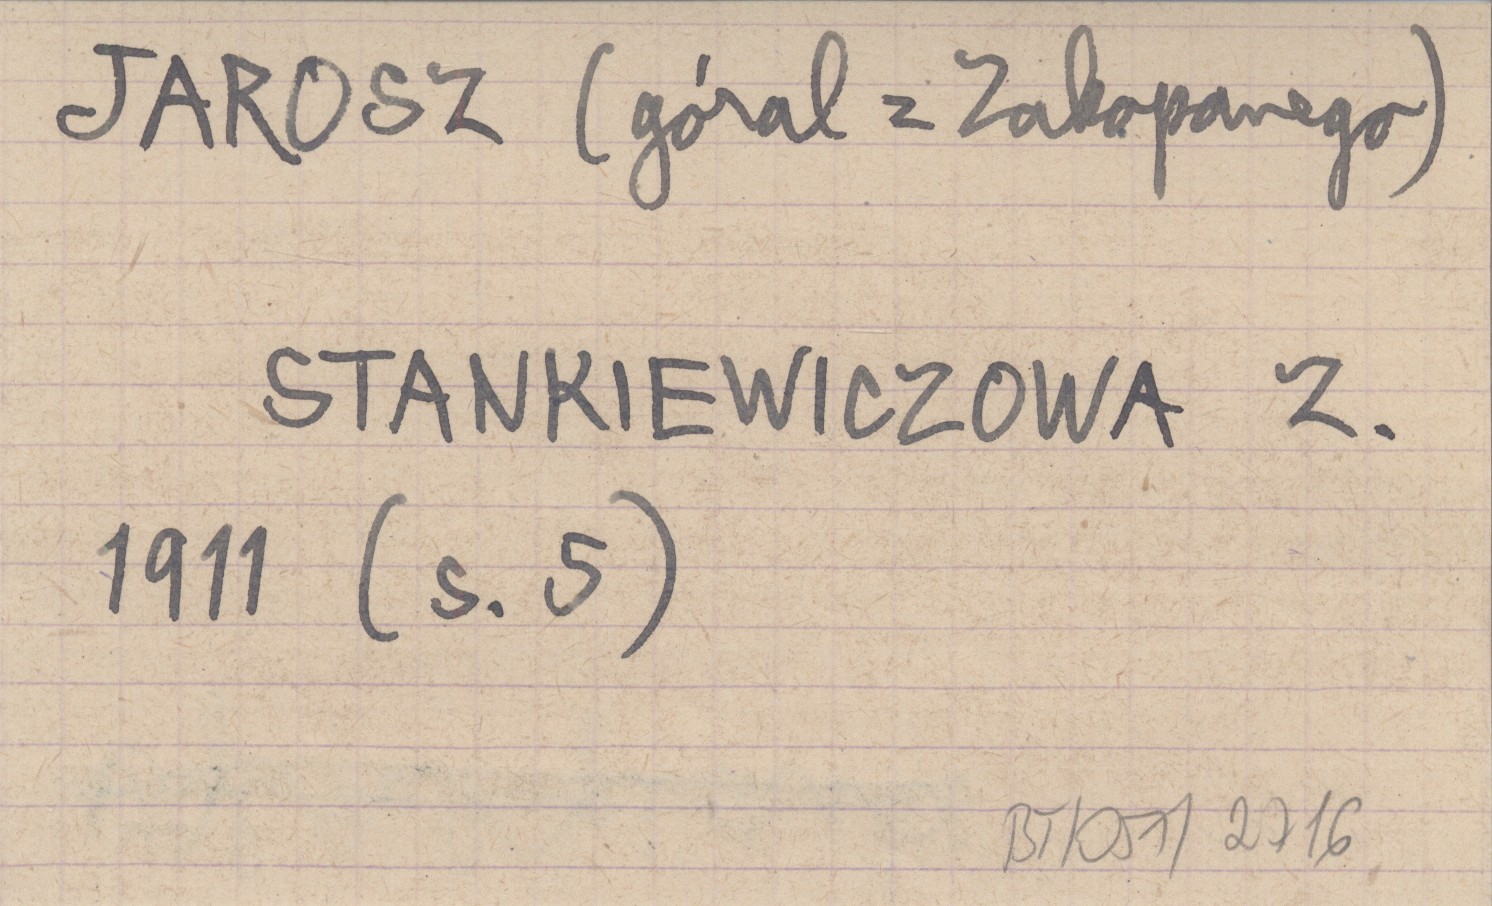 JAROSZ (góral z Zakopanego)
STANKIEWICZOWA Z.
1911 (s. 5)
BT/OST/ 2716